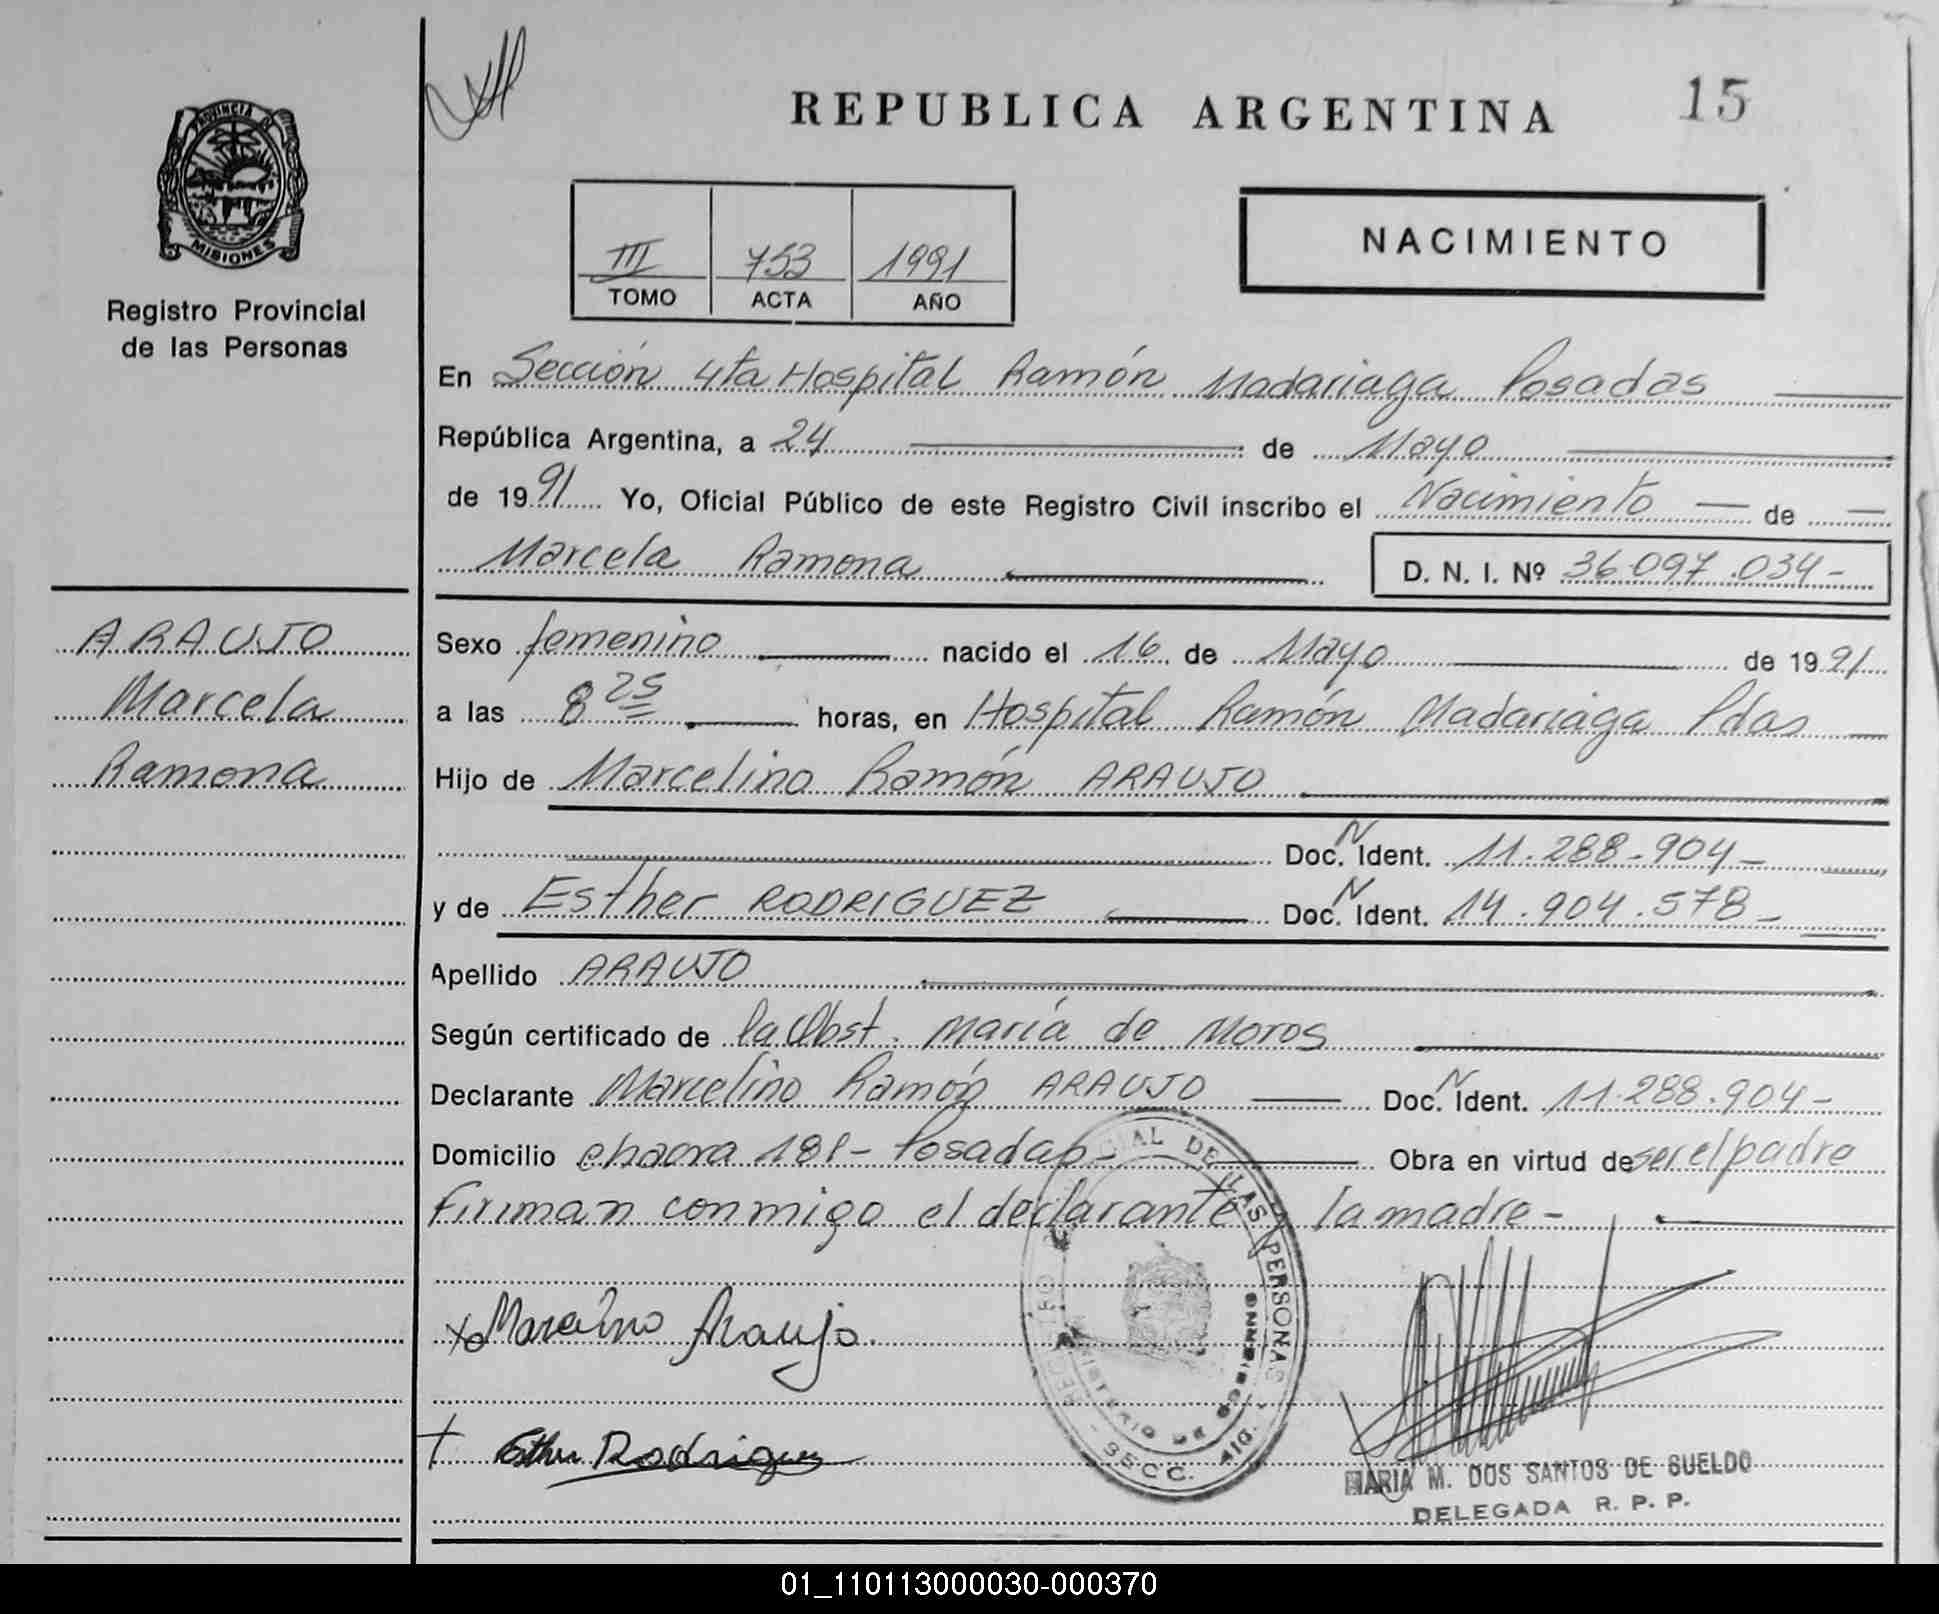 REPUBLICA ARGENTINA
15
PROVINCIA DE
MISIONES
Registro Provincial
de las Personas
III 753 1991
TOMO ACTA AÑO
NACIMIENTO
En Sección 4ta Hospital Ramón Madariaga Posadas
República Argentina, a 24 de Mayo
de 1991 Yo, Oficial Público de este Registro Civil inscribo el Nacimiento de
Marcela Ramona D. N. I. Nº 36.097.034-
ARAUJO
Marcela
Ramona
Sexo femenino nacido el 16 de Mayo de 1991
a las 8 25 horas, en Hospital Ramón Madariaga Pdas
Hijo de Marcelino Ramón ARAUJO
Doc. N Ident. 11.288.904-
y de Esther RODRIGUEZ Doc. N Ident. 14.904.578-
Apellido ARAUJO
Según certificado de la Obst. María de Moros
Declarante Marcelino Ramón ARAUJO Doc. N Ident. 11.288.904-
Domicilio chacra 181- Posadas- Obra en virtud de ser el padre
Firman conmigo el declarante y la madre-
Marcelino Araujo.
Esther Rodriguez
DE LAS PERSONAS
DE GOBIERNO
SECC. 4ta.
MARIA M. DOS SANTOS DE SUELDO
DELEGADA R. P. P.
01_110113000030-000370